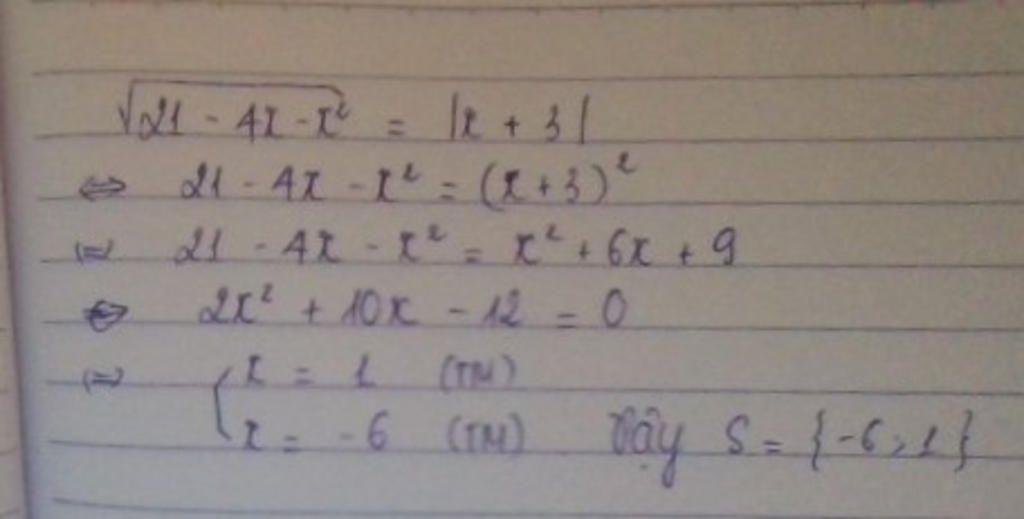 √21 - 4x - x² = |x + 3|
⇔ 21 - 4x - x² = (x+3)²
⇔ 21 - 4x - x² = x² + 6x + 9
⇔ 2x² + 10x - 12 = 0
⇔ [ x = 1 (TM)
x = -6 (TM) Vậy S = {-6; 1}